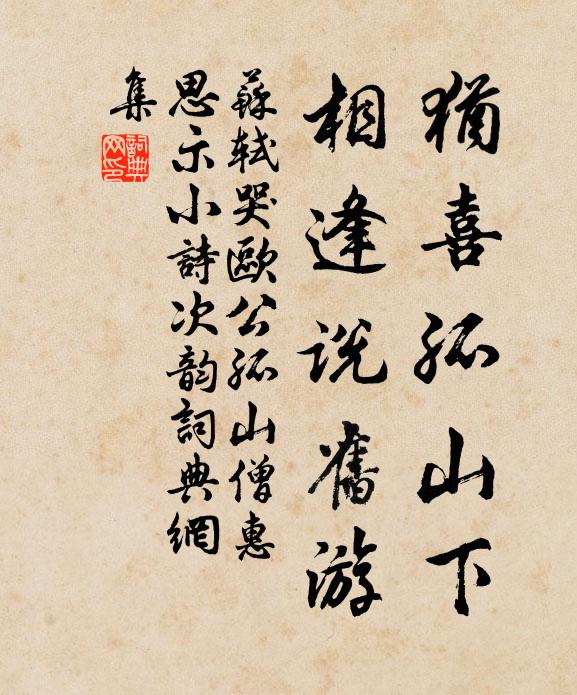 猶喜孤山下
相逢說舊游
蘇軾哭歐公孤山僧惠
思示小詩次韵詞典網
集
詞典網印